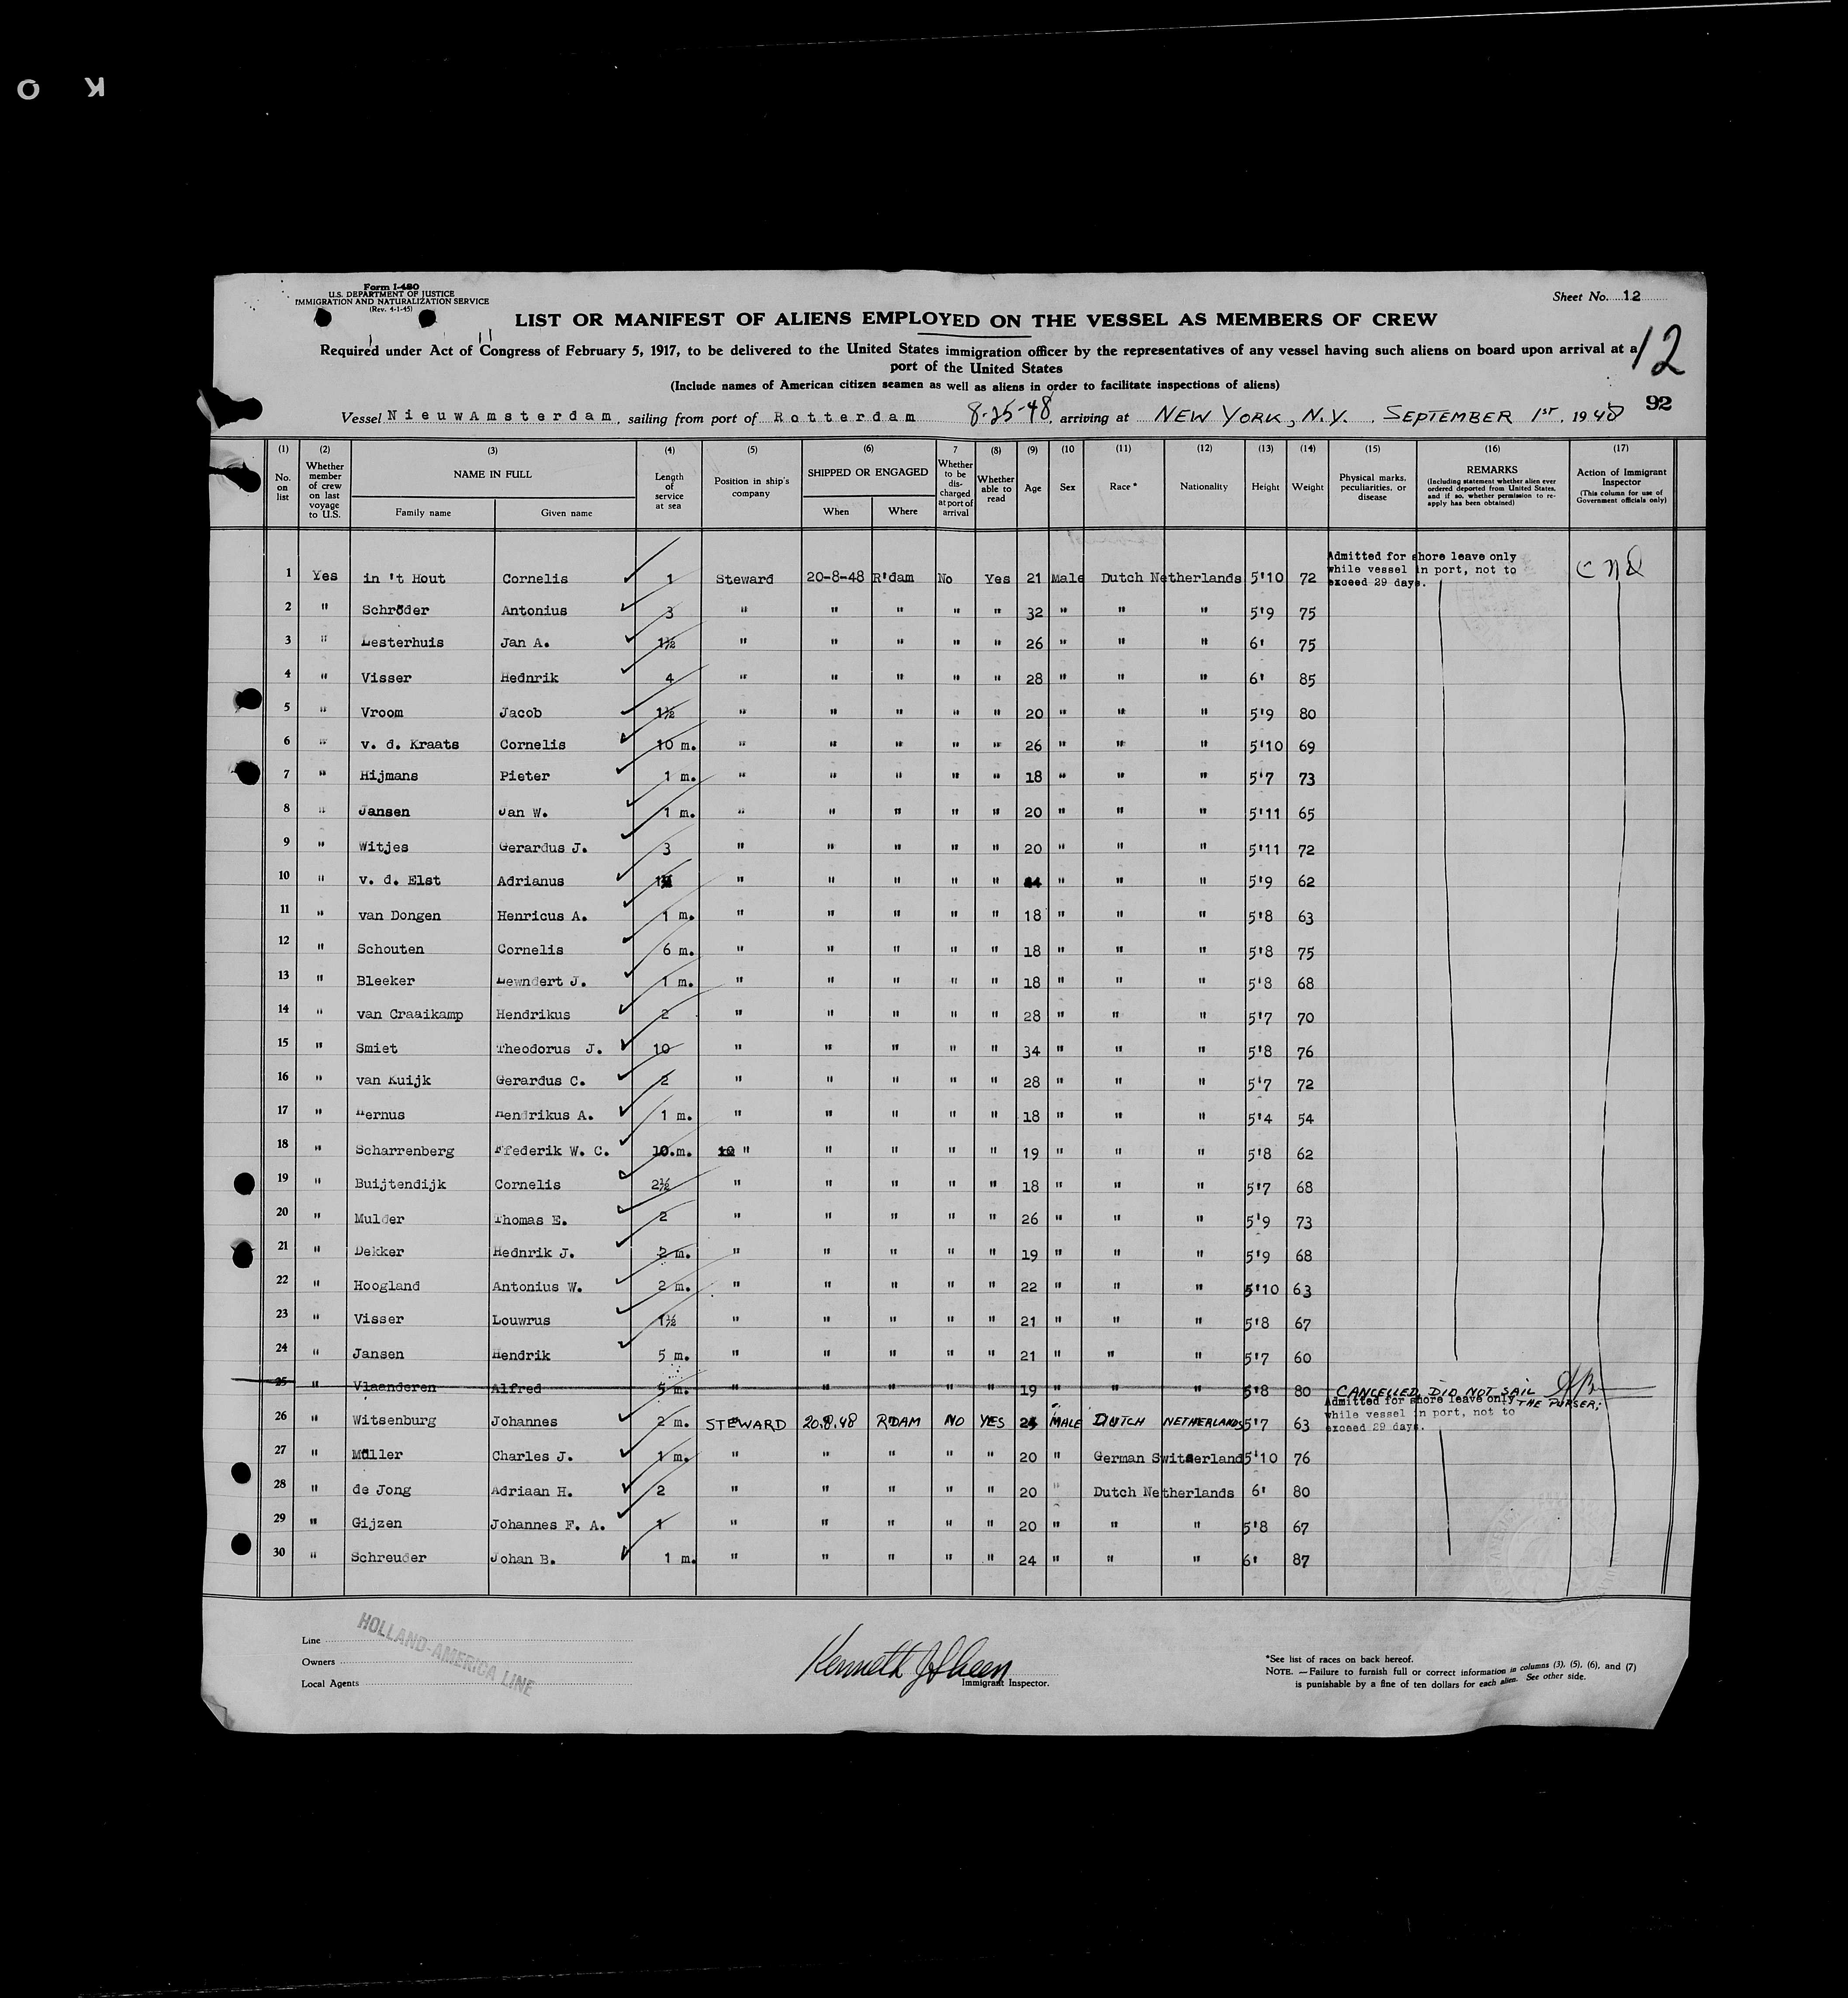 O K
Form I-480
U.S. DEPARTMENT OF JUSTICE
IMMIGRATION AND NATURALIZATION SERVICE
(Rev. 4-1-45)
Sheet No. 12
LIST OR MANIFEST OF ALIENS EMPLOYED ON THE VESSEL AS MEMBERS OF CREW
12
Required under Act of Congress of February 5, 1917, to be delivered to the United States immigration officer by the representatives of any vessel having such aliens on board upon arrival at a
port of the United States
(Include names of American citizen seamen as well as aliens in order to facilitate inspections of aliens)
92
Vessel NieuwAmsterdam, sailing from port of Rotterdam 8-25-48, arriving at NEW YORK, N.Y. SEPTEMBER 1ST, 1948
(1) No. on list (2) Whether member of crew on last voyage to U.S. (3) NAME IN FULL Family name Given name (4) Length of service at sea (5) Position in ship's company (6) SHIPPED OR ENGAGED When Where 7 Whether to be discharged at port of arrival (8) Whether able to read (9) Age (10 Sex (11) Race* (12) Nationality (13) Height (14) Weight (15) Physical marks, peculiarities, or disease (16) REMARKS (Including statement whether alien ever ordered deported from United States, and if so, whether permission to re-apply has been obtained) (17) Action of Immigrant Inspector (This column for use of Government officials only)
Admitted for shore leave only
while vessel in port, not to
exceed 29 days.
1 Yes in 't Hout Cornelis 1 Steward 20-8-48 R'dam No Yes 21 Male Dutch Netherlands 5'10 72
2 " Schröder Antonius 3 " " " " " 32 " " " 5'9 75
3 " Lesterhuis Jan A. 1½ " " " " " 26 " " " 6' 75
4 " Visser Hednrik 4 " " " " " 28 " " " 6' 85
5 " Vroom Jacob 1½ " " " " " 20 " " " 5'9 80
6 " v. d. Kraats Cornelis 10 m. " " " " " 26 " " " 5'10 69
7 " Hijmans Pieter 1 m. " " " " " 18 " " " 5'7 73
8 " Jansen Jan W. 1 m. " " " " " 20 " " " 5'11 65
9 " Witjes Gerardus J. 3 " " " " " 20 " " " 5'11 72
10 " v. d. Elst Adrianus " " " " " " " " 5'9 62
11 " van Dongen Henricus A. 1 m. " " " " " 18 " " " 5'8 63
12 " Schouten Cornelis 6 m. " " " " " 18 " " " 5'8 75
13 " Bleeker Lewndert J. 1 m. " " " " " 18 " " " 5'8 68
14 " van Craaikamp Hendrikus 2 " " " " " 28 " " " 5'7 70
15 " Smiet Theodorus J. 10 " " " " " 34 " " " 5'8 76
16 " van Kuijk Gerardus C. 2 " " " " " 28 " " " 5'7 72
17 " Hernus Hendrikus A. 1 m. " " " " " 18 " " " 5'4 54
18 " Scharrenberg Frederik W. C. 10.m. 10 " " " " " 19 " " " 5'8 62
19 " Buijtendijk Cornelis 2½ " " " " " 18 " " " 5'7 68
20 " Mulder Thomas E. 2 " " " " " 26 " " " 5'9 73
21 " Dekker Hednrik J. 2 m. " " " " " 19 " " " 5'9 68
22 " Hoogland Antonius W. 2 m. " " " " " 22 " " " 5'10 63
23 " Visser Louwrus 1½ " " " " " 21 " " " 5'8 67
24 " Jansen Hendrik 5 m. " " " " " 21 " " " 5'7 60
25 " Vlaanderen Alfred 5 m. " " " " " 19 " " " 5'8 80 CANCELLED, DID NOT SAIL
THE PURSER;
Admitted for shore leave only
while vessel in port, not to
exceed 29 days.
26 " Witsenburg Johannes 2 m. STEWARD 20.8.48 R'DAM NO YES MALE DUTCH NETHERLANDS 5'7 63
27 " Müller Charles J. 1 m. " " " " " 20 " German Switzerland 5'10 76
28 " de Jong Adriaan H. 2 " " " " " 20 " Dutch Netherlands 6' 80
29 " Gijzen Johannes F. A. 1 " " " " " 20 " " " 5'8 67
30 " Schreuder Johan B. 1 m. " " " " " 24 " " " 6' 87
Line
Owners
Local Agents
HOLLAND-AMERICA LINE
Kenneth
Immigrant Inspector.
*See list of races on back hereof.
NOTE.—Failure to furnish full or correct information in columns (3), (5), (6), and (7)
is punishable by a fine of ten dollars for each alien. See other side.